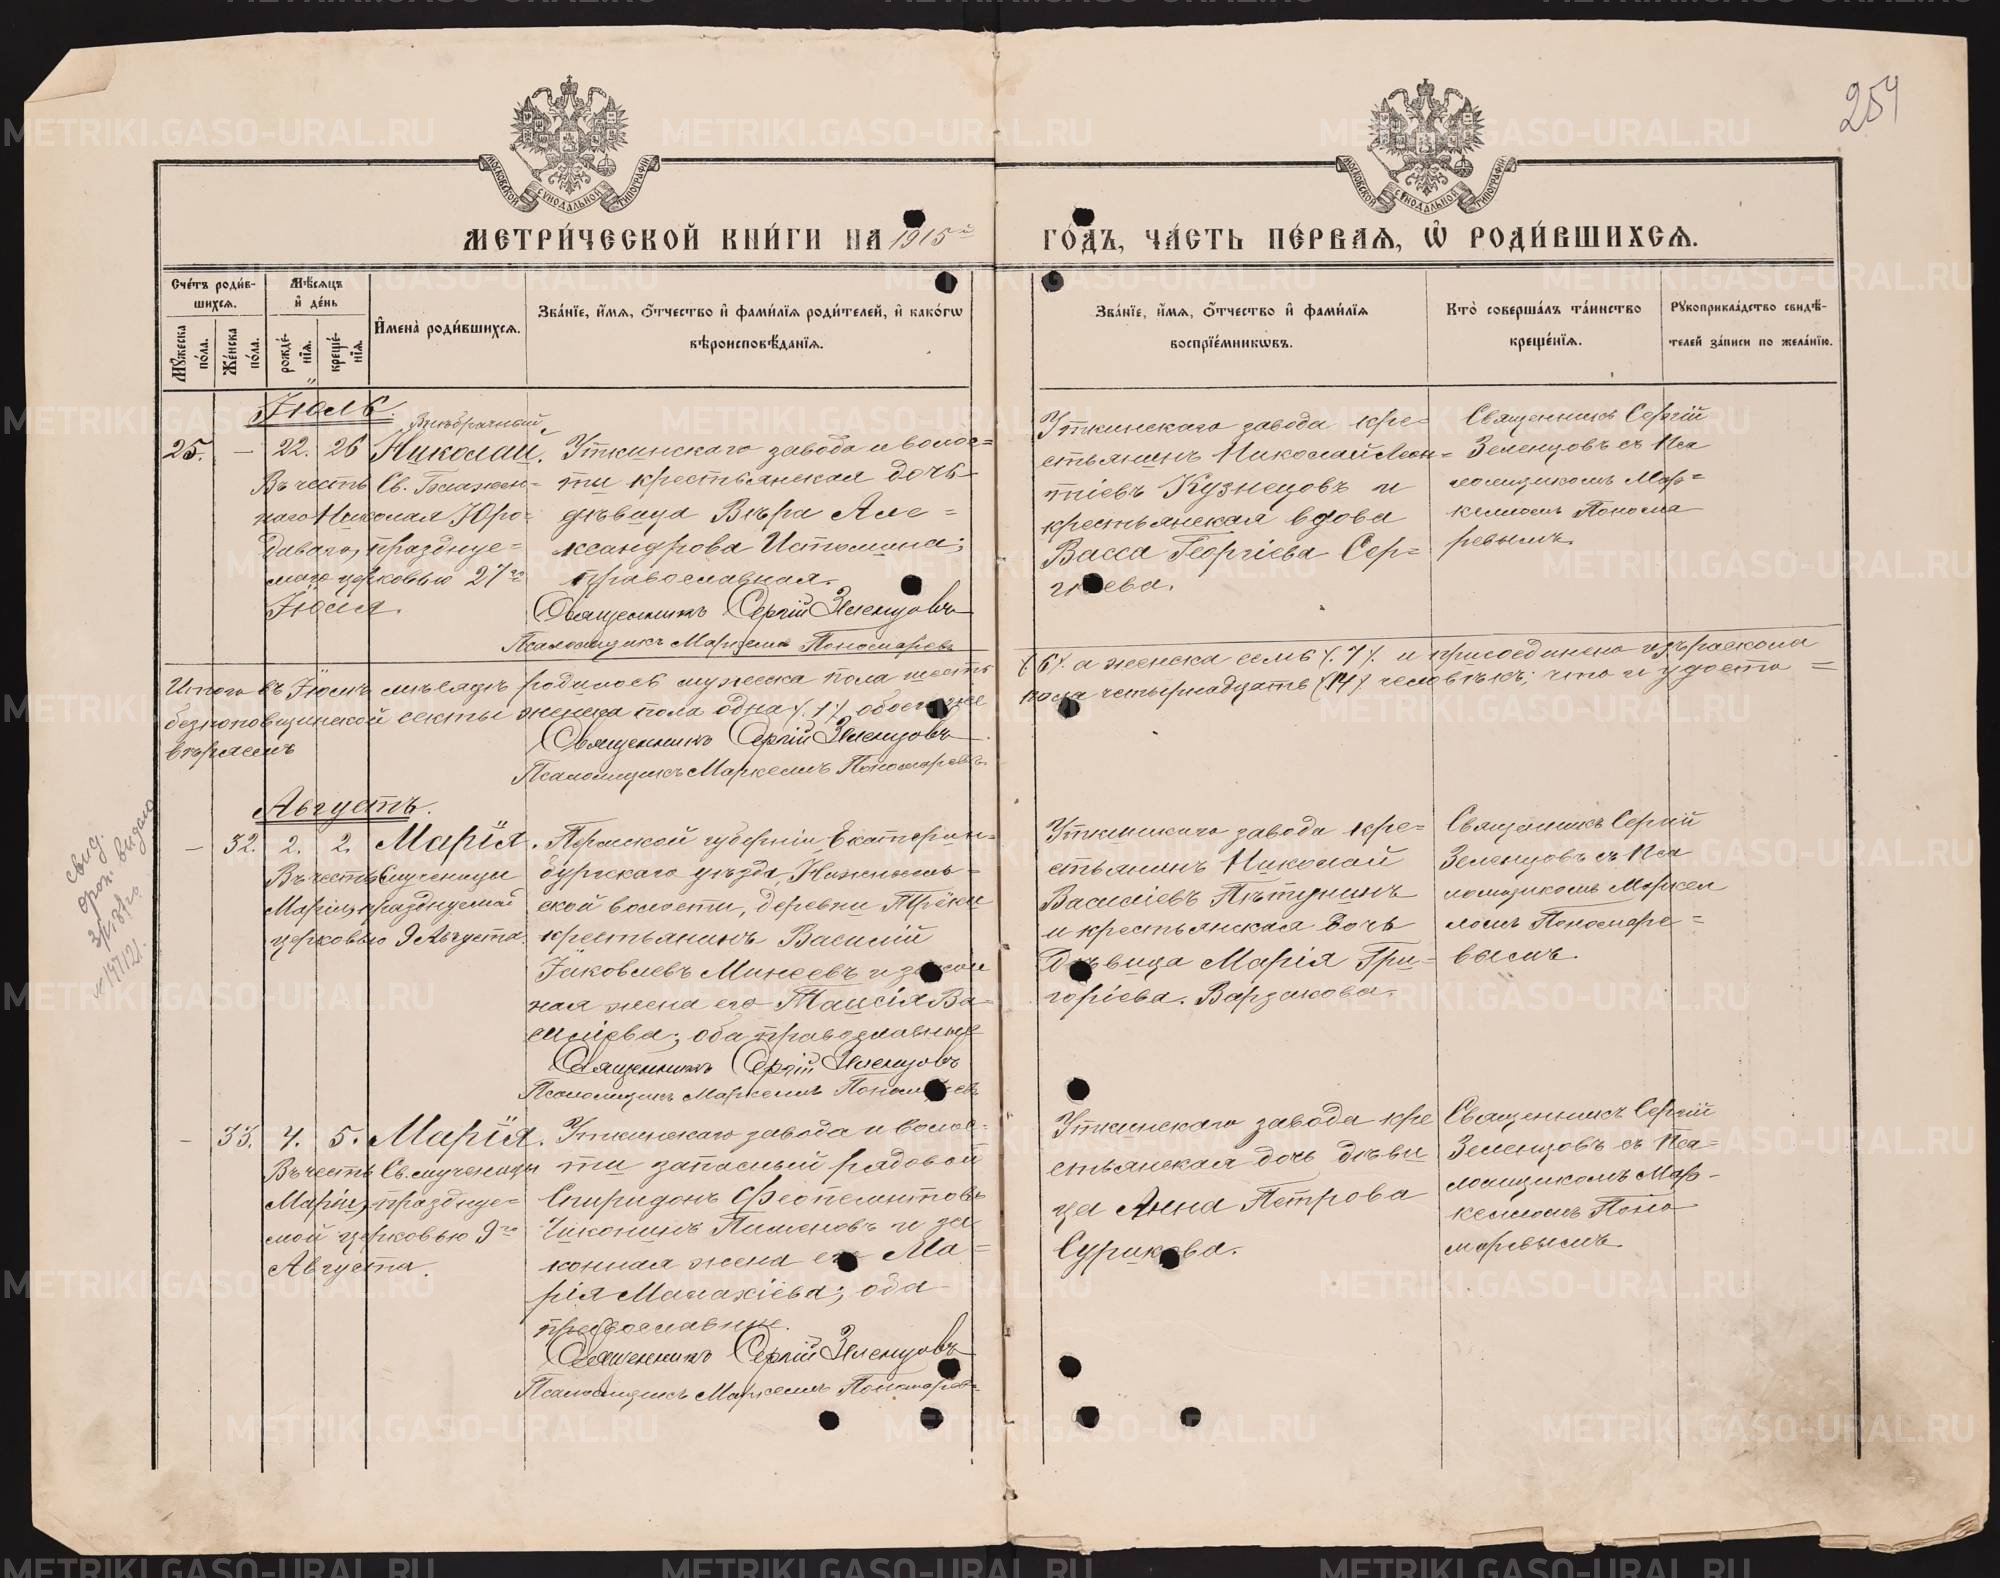 254
МОСКОВСКОЙ СѴНОДАЛЬНОЙ ТИПОГРАФІИ
МОСКОВСКОЙ СѴНОДАЛЬНОЙ ТИПОГРАФІИ
МЕТРИ́ЧЕСКОЙ КНИ́ГИ НА 1915й ГО́ДЪ, ЧА́СТЬ ПЕ́РВАѦ, Ѡ҆ РОДИ́ВШИХСѦ.
Сче́тъ роди́в-
шихсѧ.
Мꙋ́жеска по́ла.
Же́нска по́ла.
Мѣ́сѧцъ
и҆ де́нь
рожде́-
нїѧ.
креще́-
нїѧ.
И҆мена̀ роди́вшихсѧ.
Зва́нїе, и҆́мѧ, ѻ҆́тчество и҆ фами́лїѧ роди́телей, и҆ како́гѡ
вѣроисповѣ́данїѧ.
Зва́нїе, и҆́мѧ, ѻ҆́тчество и҆ фами́лїѧ
воспрїе́мникѡвъ.
Кто̀ соверша́лъ та́инство
креще́нїѧ.
Рꙋкоприкла́дство свидѣ́-
телей за́писи по жела́нїю.
Іюль.
Внѣбрачный
25. – 22. 26 Николай.
Въ честь Св. Блажен-
наго Николая Юро-
диваго, празднуе-
маго церковью 27го
Іюля.
Уткинскаго завода и волос-
ти крестьянская дочь
дѣвица Вѣра Але-
ксандрова Истомина;
православная.
Священникъ Сергій Зеленцовъ
Псаломщикъ Маркеллъ Пономаревъ
Уткинскаго завода кре-
стьянинъ Николай Леон-
тіевъ Кузнецовъ и
крестьянская вдова
Васса Георгіева Сер-
гѣева.
Священникъ Сергій
Зеленцовъ съ Пса
ломщикомъ Мар-
келломъ Понома
ревымъ.
Итого въ Іюлѣ мѣсяцѣ родилось мужеска пола шесть (6), а женска семь (7). и присоединено изъ раскола
безпоповщинской секты женска пола одна (1), обоего же пола четырнадцать (14) человѣкъ; что и удосто-
вѣряемъ
Священникъ Сергій Зеленцовъ
Псаломщикъ Маркеллъ Пономаревъ.
Августъ.
свид.
выдано
– 32. 2. 2. Марія.
Въ честь мученицы
Маріи, празднуемой
церковью 9 Августа.
Пермской губерніи, Екатерин-
бургскаго уѣзда,
ской волости, деревни Трёки
крестьянинъ Василій
Іаковлевъ Минеевъ и закон
ная жена его Таисія Ва-
силіева; оба православные
Священникъ Сергій Зеленцовъ
Псаломщикъ Маркеллъ Пономаревъ
Уткинскаго завода кре-
стьянинъ Николай
Василіевъ Пѣтунинъ
и крестьянская дочь
Дѣвица Марія Гри-
горіева. Варзакова.
Священникъ Сергій
Зеленцовъ съ Пса
ломщикомъ Маркел
ломъ Пономаре-
вымъ.
– 33. 4. 5. Марія.
Въ честь Св. мученицы
Маріи, празднуе-
мой церковью 9го
Августа.
Уткинскаго завода и волос-
ти запасный рядовой
Спиридонъ Феопемптовъ
Чиконинъ Пименовъ и за
конная жена его Ма-
рія Малахіева; оба
православные.
Священникъ Сергій Зеленцовъ
Псаломщикъ Маркеллъ Пономаревъ
Уткинскаго завода кре
стьянская дочь дѣви
ца Анна Петрова
Сурикова.
Священникъ Сергій
Зеленцовъ съ Пса-
ломщикомъ Мар-
келломъ Поно
маревымъ.
METRIKI.GASO-URAL.RU